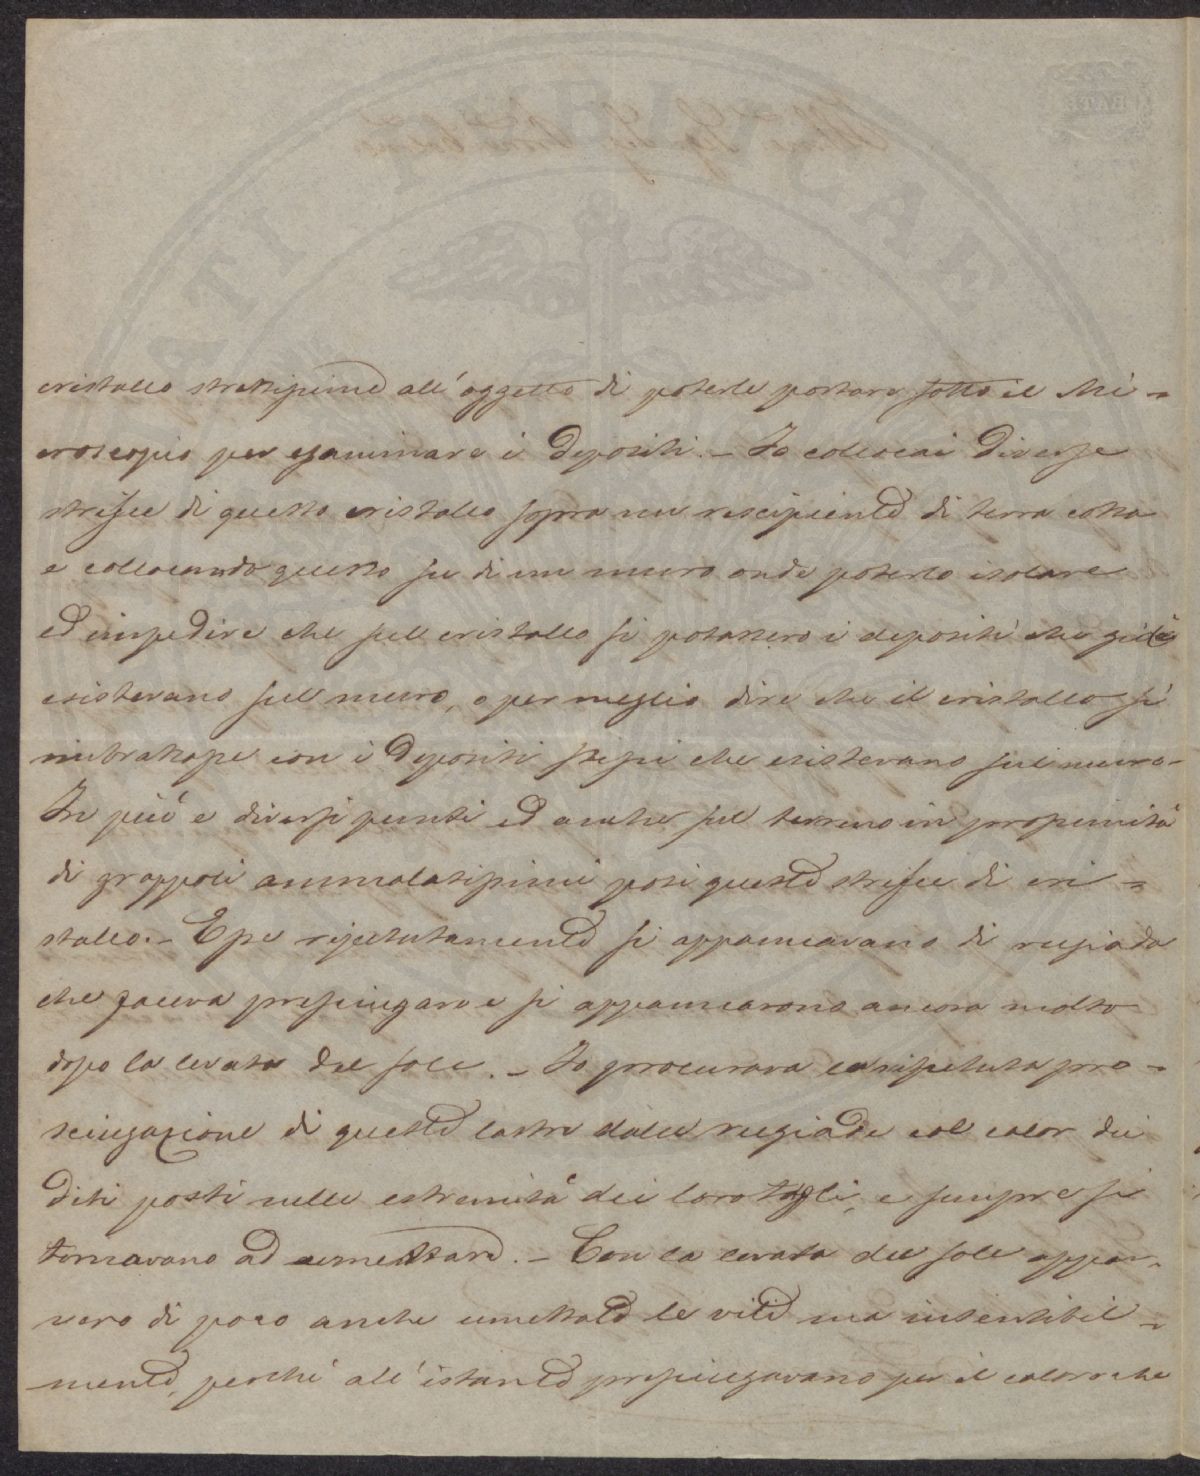 cristallo strettissime all'oggetto di poterle portare sotto il Mi-
croscopio per esaminare i depositi. - Io collocai diverse
strisce di questo cristallo sopra un recipiente di terra cotta
e collocando questo su di un muro onde poterlo isolare
ed impedire che sul cristallo si potassero i depositi che già
esistevano sul muro, o per meglio dire che il cristallo si
imbrattasse con i depositi stessi che esistevano sul muro -
In più e diversi punti ed anche sul terreno in prossimità
di grappoli ammalatissimi posi queste strisce di cri-
stallo. - Esse ripetutamente si appannavano di rugiada
che faceva prosciugare e si appannarono ancora molto
dopo la levata del sole. - Io procurava la ripetuta pro-
sciugazione di queste lastre dalla rugiada col calor dei
diti posti nelle estremità dei loro tagli, e sempre si
tornavano ad umettare. - Con la levata del sole appar-
vero di poco anche umettate le vite ma insensibil-
mente, perchè all'istante prosciugavano per il calore che